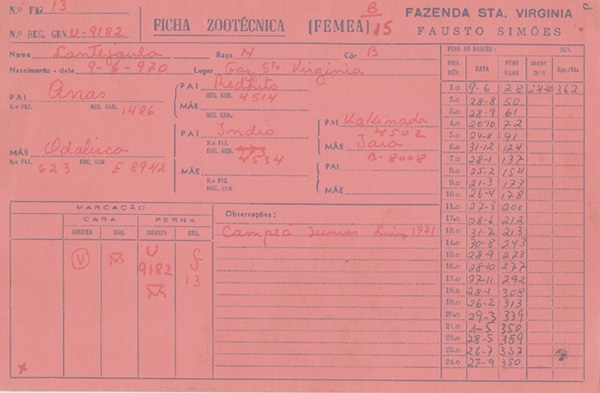 N.º FAZ. 13
N.º REG. GEN. U-9182
FICHA ZOOTÉCNICA (FEMEA)
B/15
FAZENDA STA. VIRGINIA
FAUSTO SIMÕES
Nome Lantejoula Raça N Côr B
Nascimento - data 9-6-970 Lugar Faz. Sta Virginia
PAI Anas
N.o FAZ. REG. GEN. 1486
MÃE Odalisca
N.o FAZ. 623 REG. GEN. S 8942
PAI Redhito
REG. GEN. 4514
MÃE
PAI Indio
N.o FAZ.
REG. GEN. 4534
MÃE
N.o FAZ.
REG. GEN.
PAI Kakinada
4502
MÃE Jara
B-8008
PAI
MÃE
MARCAÇÃO
CARA PERNA
DIREITA ESQ. DIREITA ESQ.
V U
9182 13
Observações:
Campeã Junior 1971
PÊSO AO NASCER: KGS.
ORD. MÊS DATA PÊSO DIAS Kgs./Dia
1.o 9-6 28 362
2.o 28-8 50
3.o 28-9 61
4.o 20-10 72
5.o 24-11 91
6.o 31-12 124
7.o 28-1 137
8.o 25-2 154
9.o 21-3 177
10.o 26-4 178
11.o 27-5 200
12.o 28-6 212
13.o 31-7 213
14.o 30-8 243
15.o 28-9 273
16.o 28-10 277
17.o 27-11 292
18.o 28-1 308
19.o 26-2 313
20.o 29-3 339
21.o 1-5 350
22.o 28-5 359
23.o 26-7 337
24.o 27-9 350